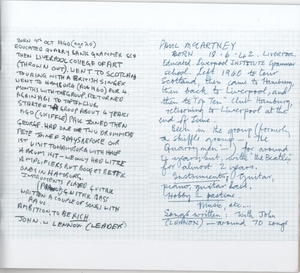 BORN 9TH OCT 1940 (age 20)
EDUCATED QUARRY BANK GRAMMER SCH
THEN LIVERPOOL COLLEGE OF ART
(THROWN OUT). WENT TO SCOTLAND
TOURING WITH A BRITISH SINGER
WENT TO HAMBURG
MONTHS WITH THE GROUP, RETURNED
TO TOP TEN CLUB
STARTED ABOUT 4 YEARS
AGO (SKIFFLE) PAUL JOINED THEN
GEORGE. HAD ONE OR TWO DRUMMERS
PETE JOINED 2 DAYS BEFORE OUR
1ST VISIT TO HAMBURG WITH HALF
A DRUM KIT — WE ONLY HAD LITTLE
AMPLIFIERS BUT GOT BETTER
ONES IN HAMBURG.
INSTRUMENTS PLAYED GUITAR
(PIANO) & LITTLE BASS
WRITTEN A COUPLE OF SONGS WITH
PAUL
AMBITION TO BE RICH
JOHN. W. LENNON (LEADER)
PAUL McCARTNEY
BORN 18-6-42. LIVERPOOL
Educated, Liverpool INSTITUTE Grammar
school. Left 1960 to tour
Scotland, then came to Hamburg
then back to Liverpool, and
then to "Top Ten" Club Hamburg,
returning to Liverpool at the
end of June.
Been in the group (formerly
a skiffle group — the
Quarrymen —!) for around
4 years, but with the Beatles
for almost 2 years.
Instruments Guitar,
piano, guitar bass.
Hobby & pastime
Music, etc...
Songs written: With John
(LENNON) — around 70 songs